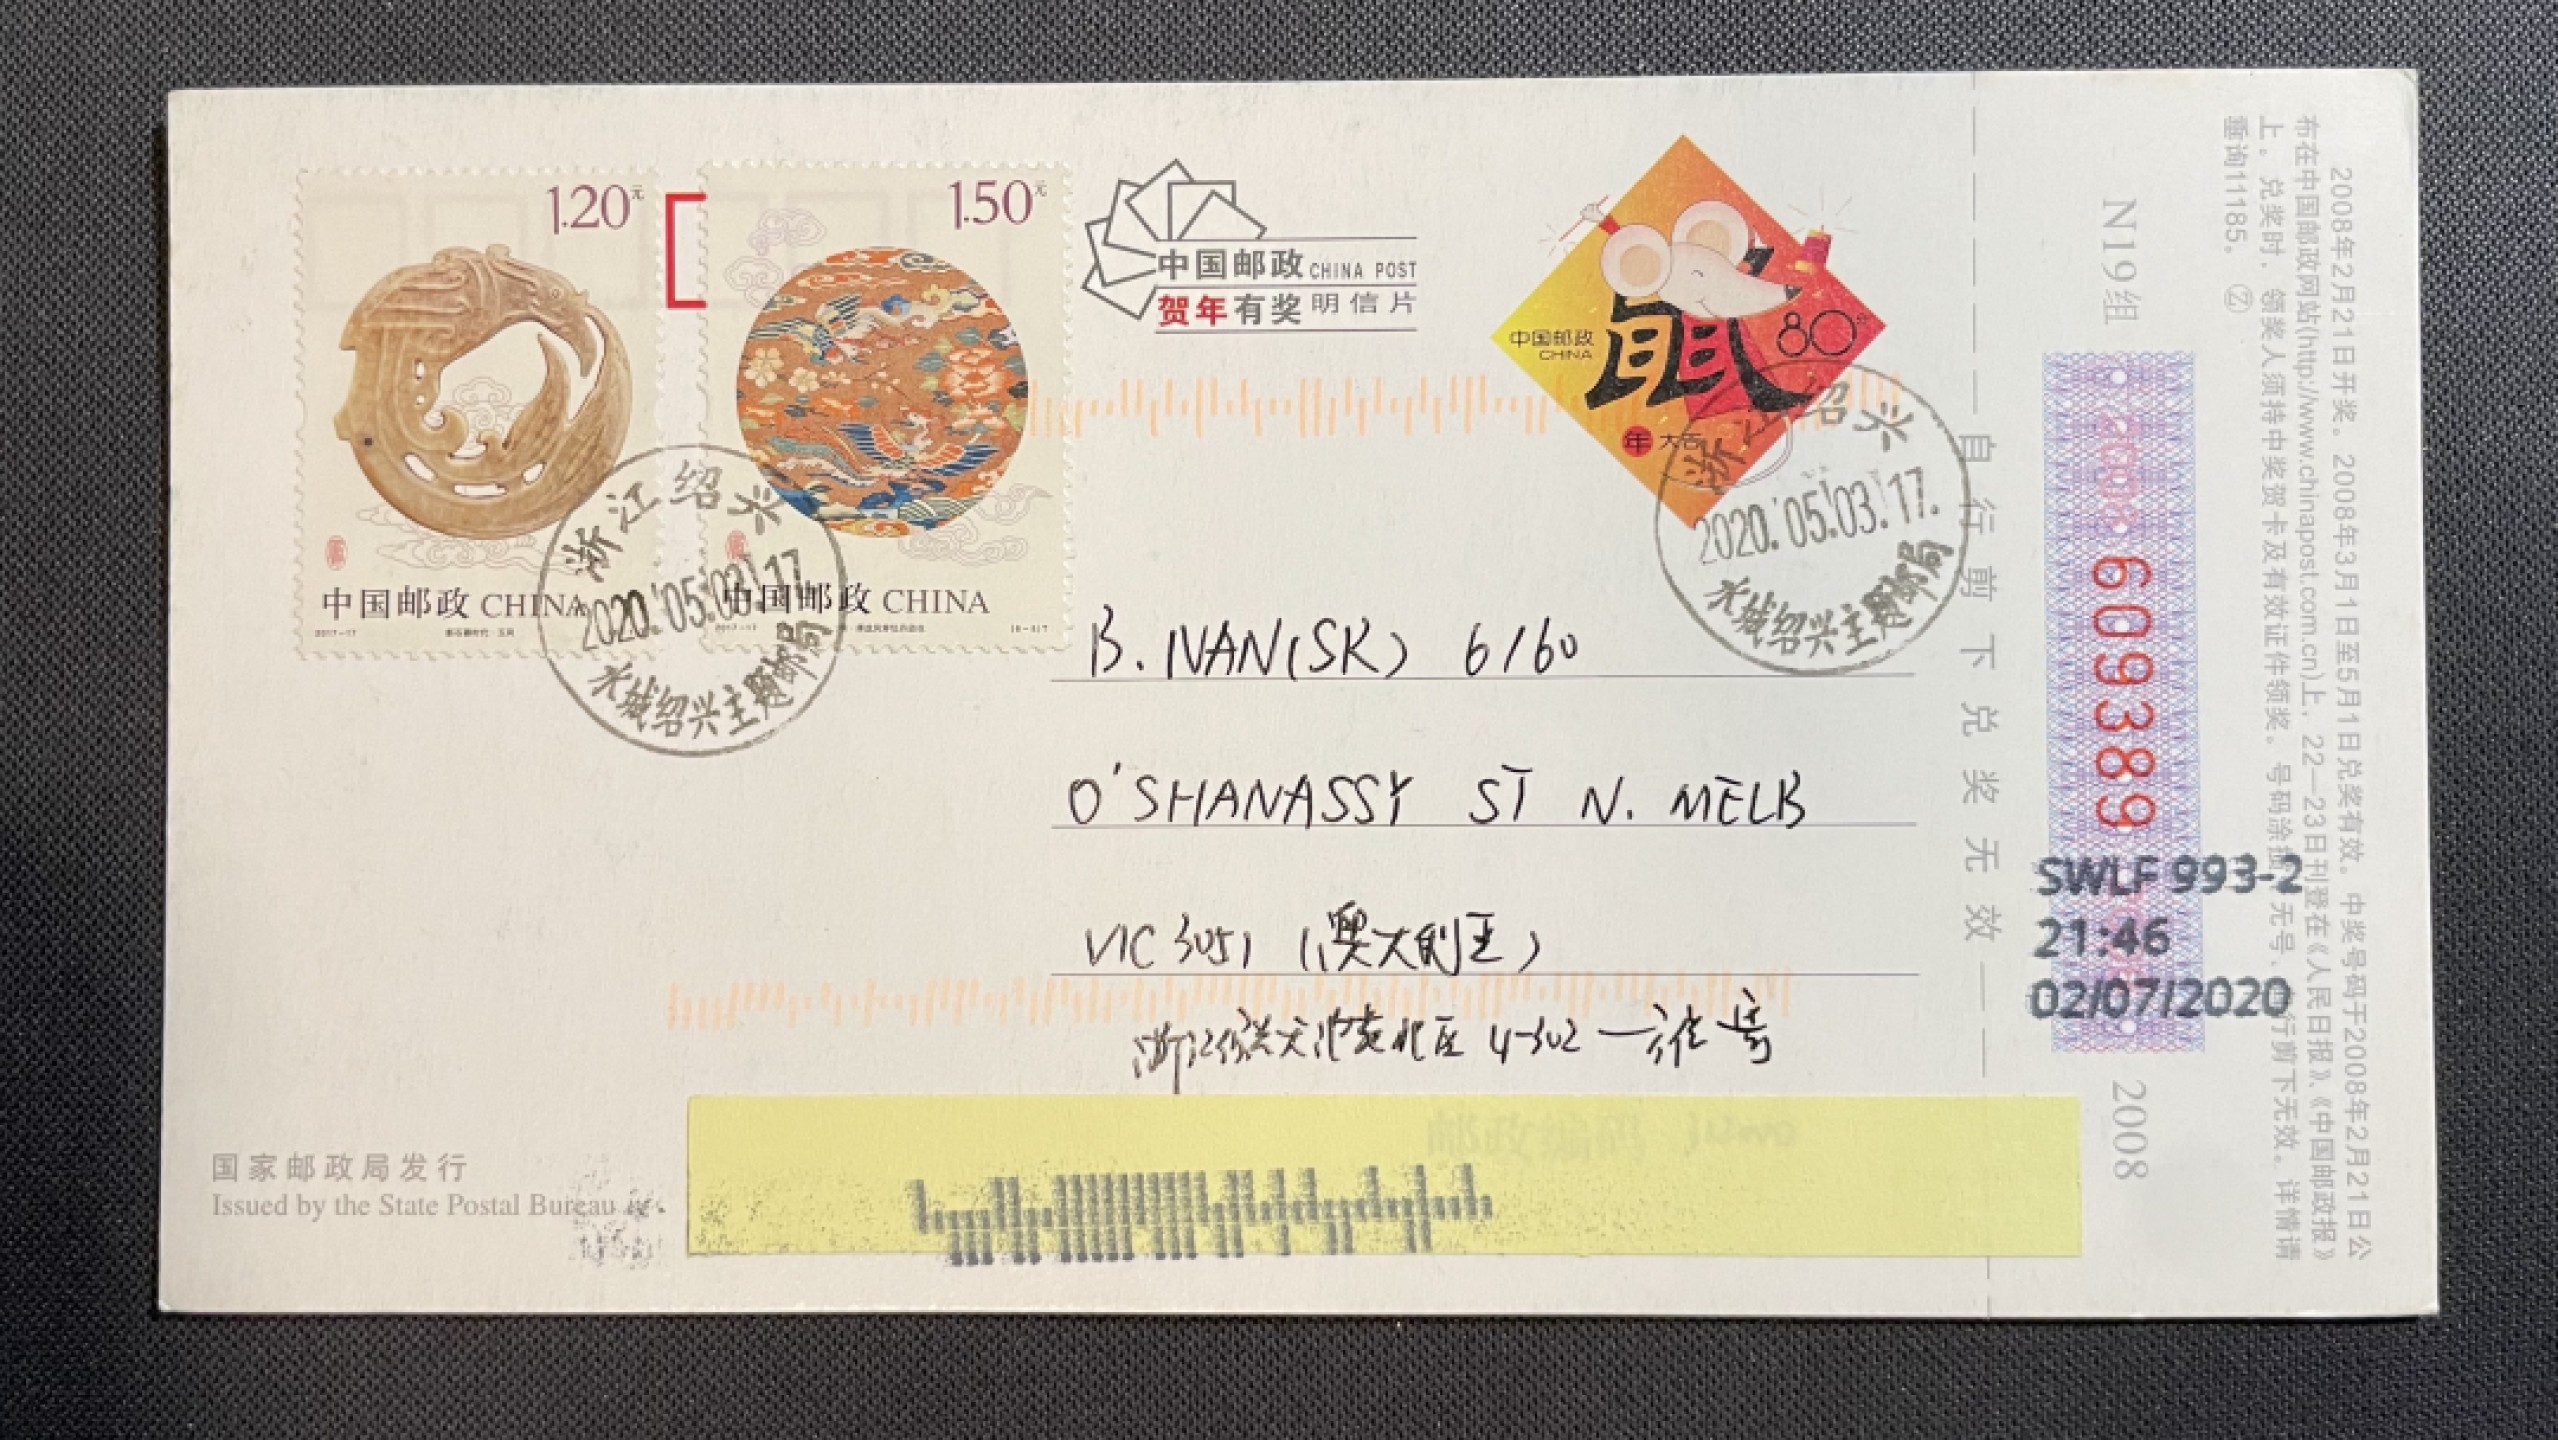 1.20元
中国邮政 CHINA
2017-17
1.50元
中国邮政 CHINA
2017-17
浙江绍兴
2020.05.03.17
水城绍兴主题邮局
中国邮政 CHINA POST
贺年有奖明信片
中国邮政
CHINA
鼠
80分
年
浙江绍兴
2020.05.03.17.
水城绍兴主题邮局
B. IVAN (SK) 6/60
O'SHANASSY ST N. MELB
VIC 3051 (澳大利亚)
4-302
国家邮政局发行
Issued by the State Postal Bureau
自行剪下兑奖无效
N19组
2008
609389
2008
SWLF 993-2
21:46
02/07/2020
2008年2月21日开奖。2008年3月1日至5月1日兑奖有效。中奖号码于2008年2月21日公
布在中国邮政网站(http://www.chinapost.com.cn)上，22—23日刊登在《人民日报》、《中国邮政报》
上。兑奖时，领奖人须持中奖贺卡及有效证件领奖。号码涂 无号、 行剪下无效。详情请
垂询11185。